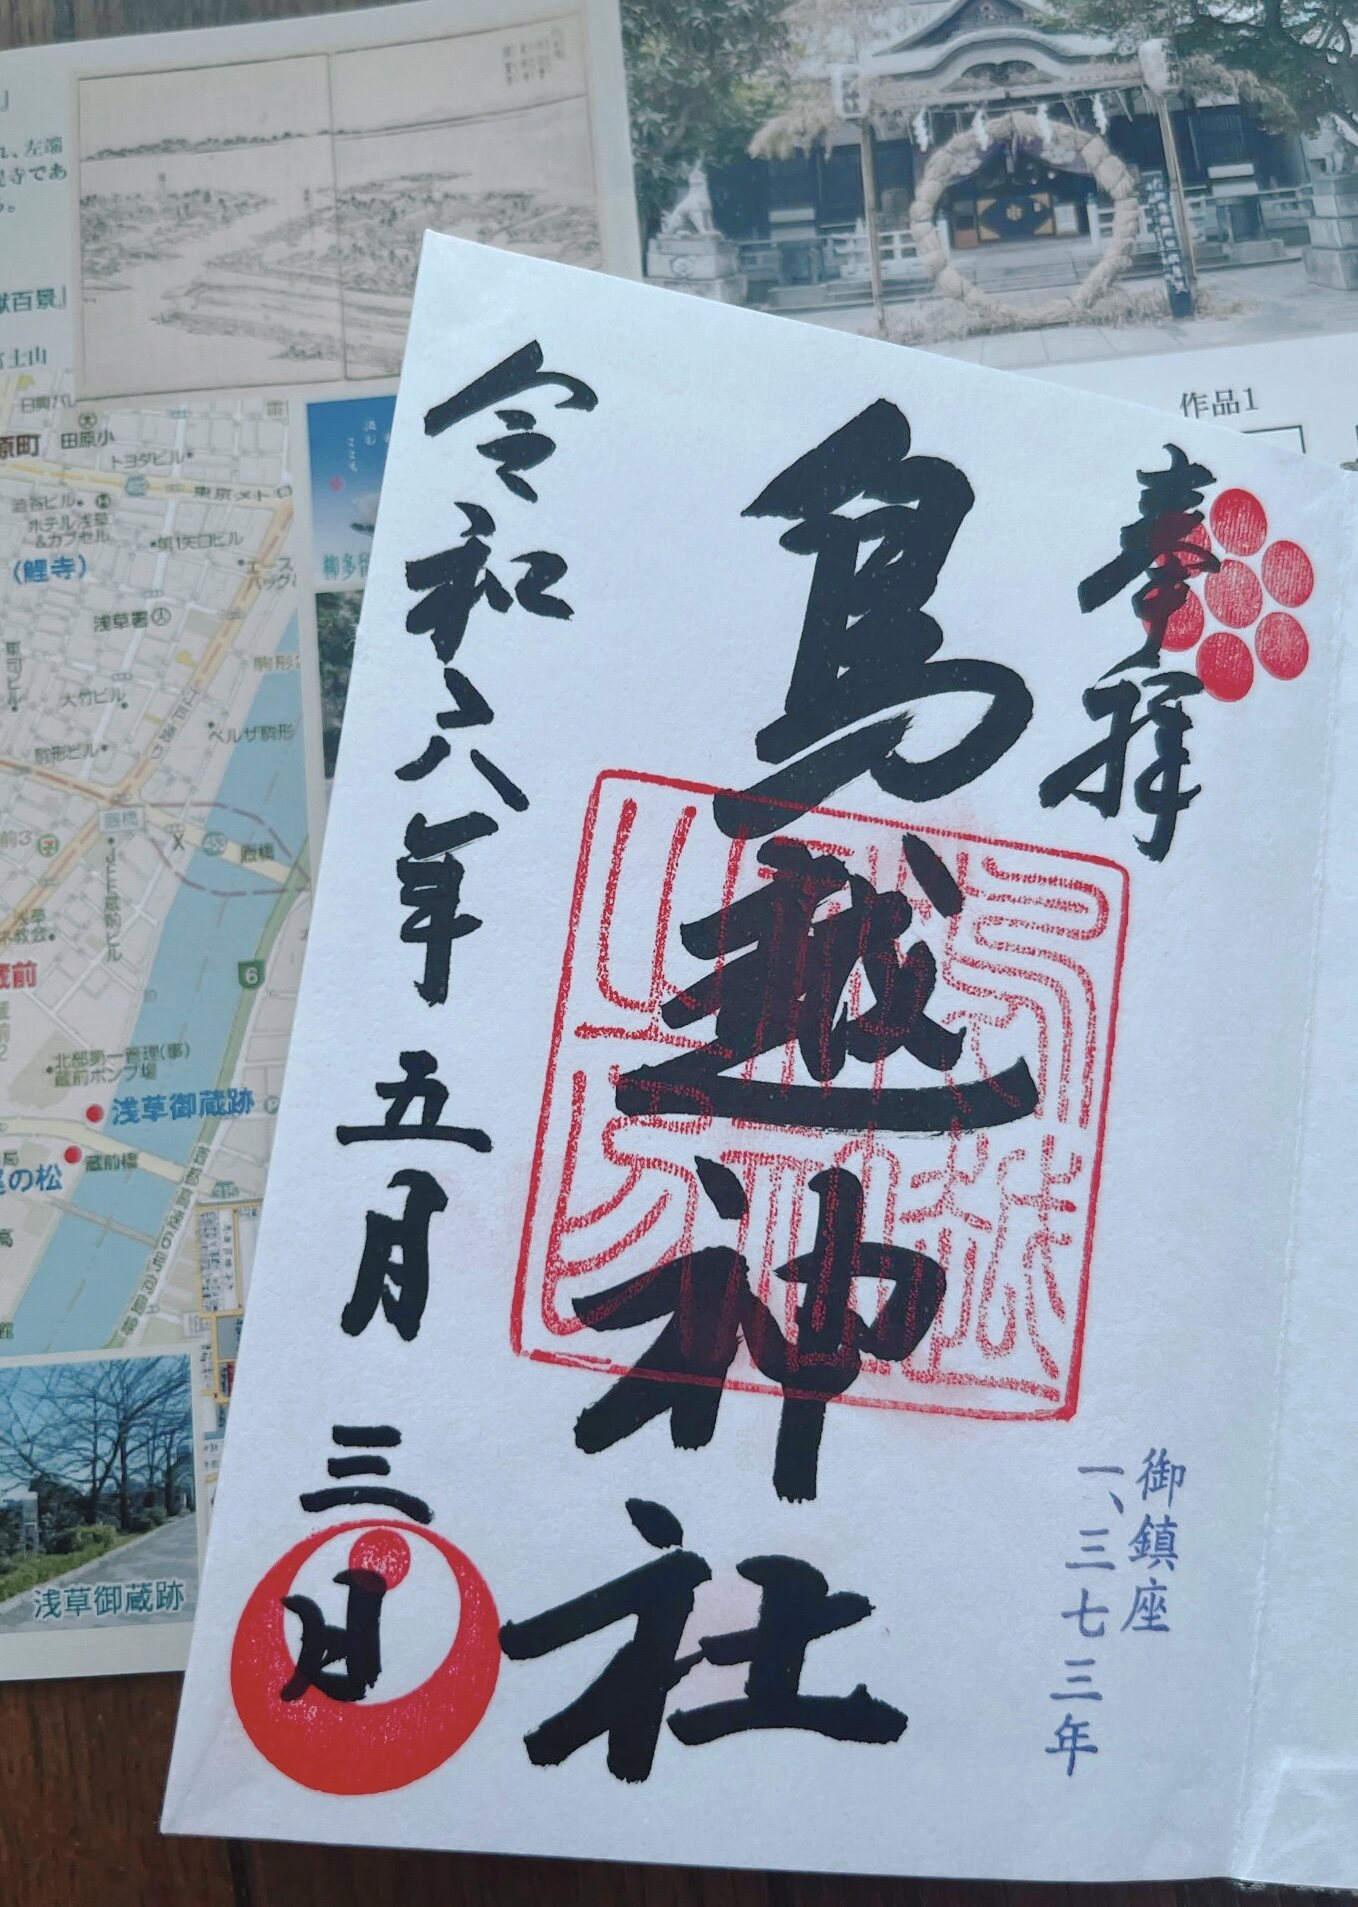 奉拝
鳥越神社
令和六年五月三日
御鎮座
一、三七三年
作品1
、左端
寺であ
る。
百景』
富士山
原町
田原小
トヨダビル
東京メトロ
渋谷ビル
ホテル浅草
&カプセル
第1矢口ビル
(鯉寺)
エース
バッグ
浅草署
駒形
大竹ビル
ベルザ駒形
駒形ビル
厩橋
厩橋
前3
6
蔵前
北部第一管理(事)
蔵前ポンプ場
浅草御蔵跡
蔵前橋
の松
柳多留
浅草御蔵跡